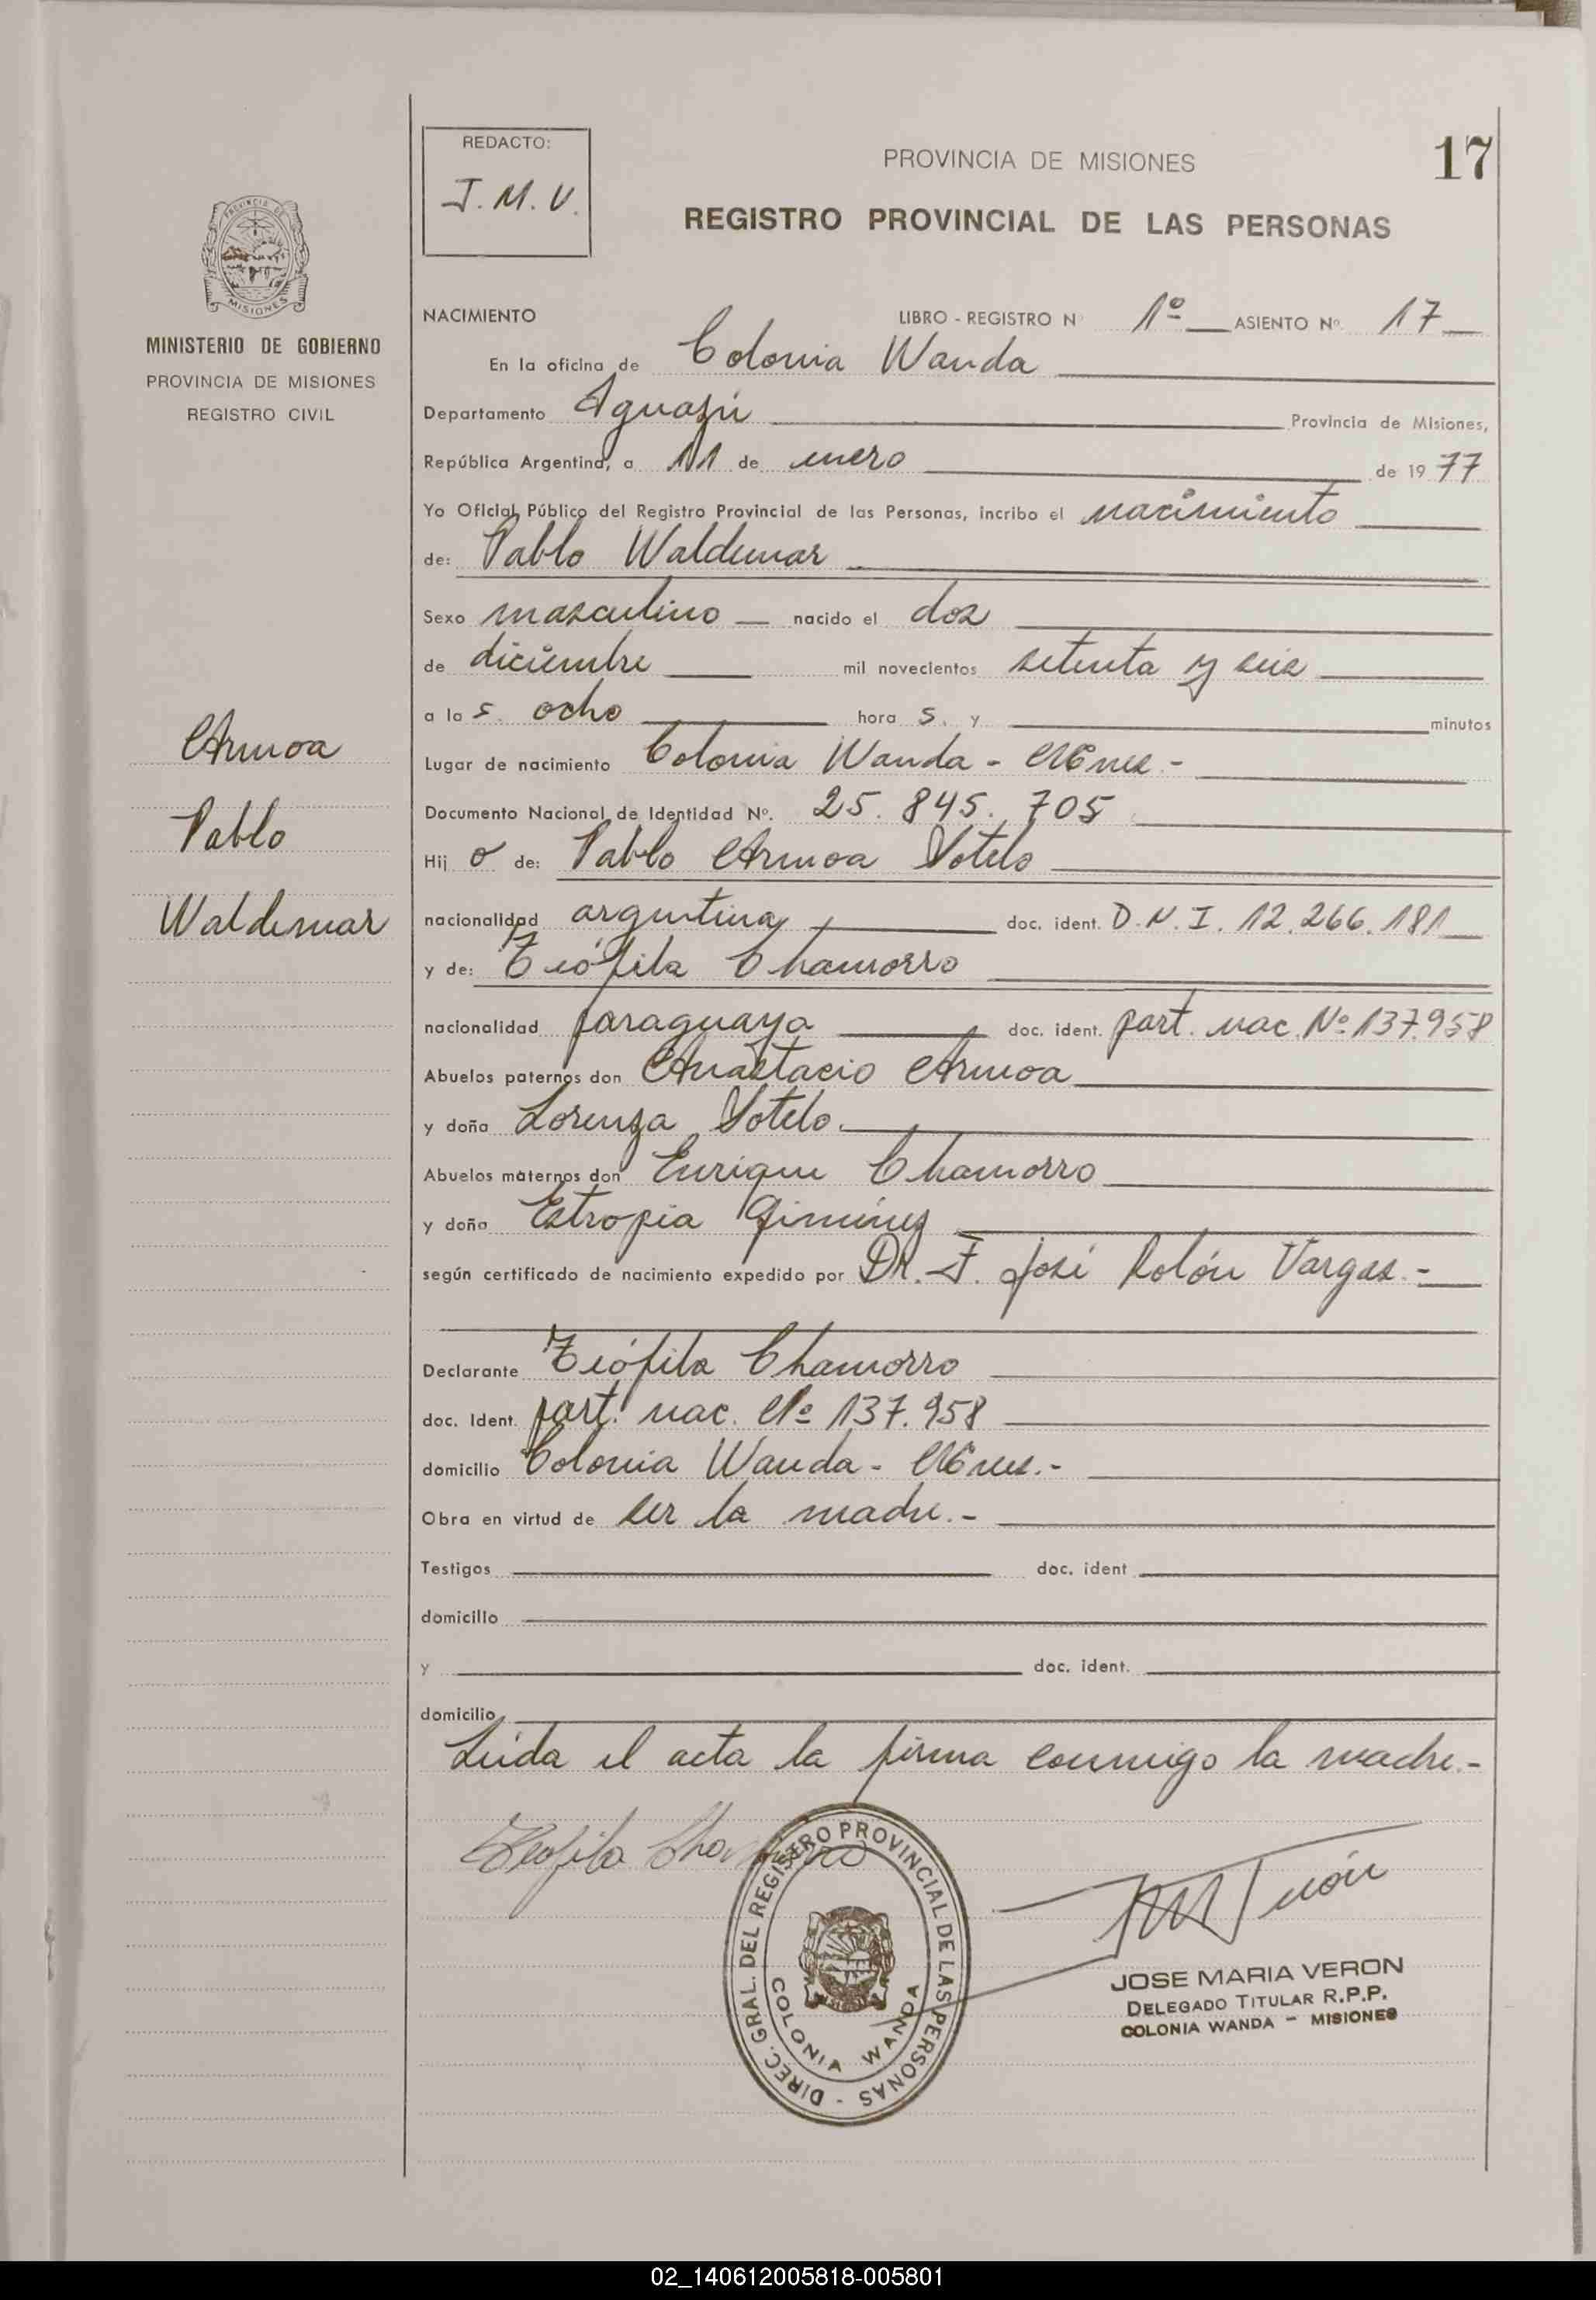 REDACTO:
J. M. V.
PROVINCIA DE MISIONES
17
REGISTRO PROVINCIAL DE LAS PERSONAS
PROVINCIA DE
MISIONES
MINISTERIO DE GOBIERNO
PROVINCIA DE MISIONES
REGISTRO CIVIL
Armoa
Pablo
Waldemar
NACIMIENTO LIBRO - REGISTRO Nº 1º ASIENTO Nº. 17
En la oficina de Colonia Wanda
Departamento Iguazú Provincia de Misiones,
República Argentina, a 11 de enero de 1977
Yo Oficial Público del Registro Provincial de las Personas, incribo el nacimiento
de: Pablo Waldemar
Sexo masculino nacido el dos
de diciembre mil novecientos setenta y seis
a la s. ocho hora s. y minutos
Lugar de nacimiento Colonia Wanda - Mnes.-
Documento Nacional de Identidad Nº. 25.845.705
Hij o de: Pablo Armoa Sotelo
nacionalidad argentina doc. ident. D.N.I. 12.266.181
y de: Teófila Chamorro
nacionalidad paraguaya doc. ident. part. nac. Nº 137.958
Abuelos paternos don Anastacio Armoa
y doña Lorenza Sotelo.
Abuelos maternos don Enrique Chamorro
y doña Estropia Giménez
según certificado de nacimiento expedido por DR. F. José Rolón Vargas.-
Declarante Teófila Chamorro
doc. Ident. part. nac. Nº 137.958
domicilio Colonia Wanda - Mnes.-
Obra en virtud de ser la madre.-
Testigos doc. ident
domicilio
y doc. ident.
domicilio
Leída el acta la firma conmigo la madre.-
Teofila Chamorro
DIREC. GRAL. DEL REGISTRO PROVINCIAL DE LAS PERSONAS -
COLONIA WANDA
JOSE MARIA VERON
DELEGADO TITULAR R.P.P.
COLONIA WANDA - MISIONES
02_140612005818-005801